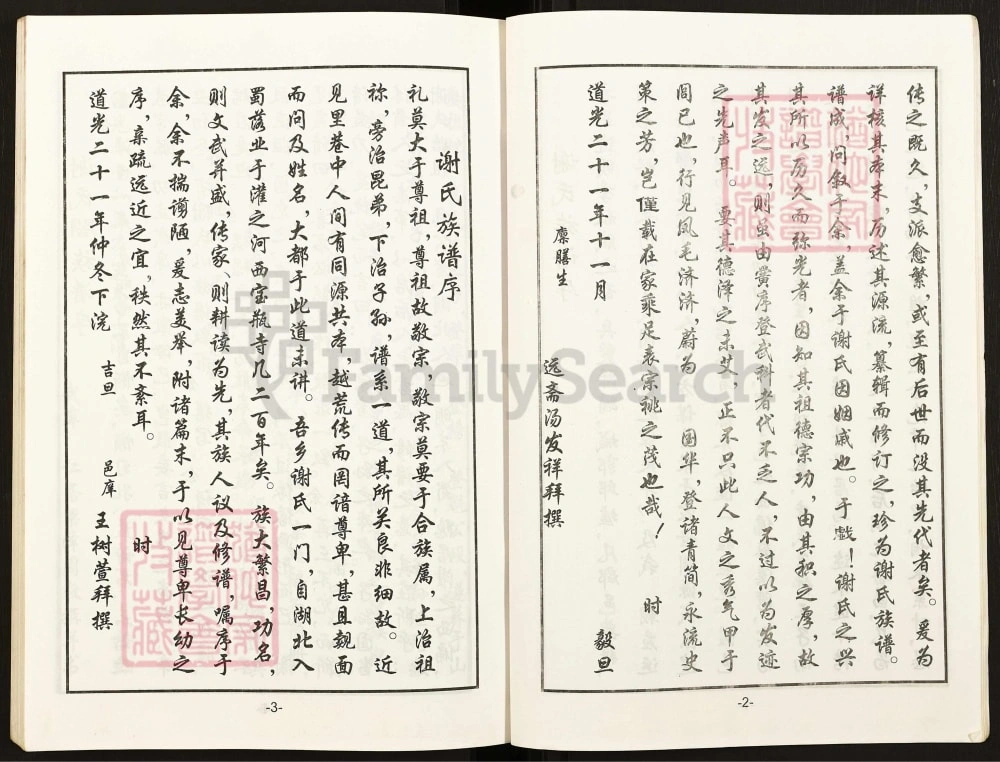 传之既久，支派愈繁，或至有后世而没其先代者矣。爰为
详核其本末，历述其源流，纂辑而修订之，珍为谢氏族谱。
谱成，问叙于余，盖余于谢氏因姻戚也。于戲！谢氏之兴
其所以历久而弥光者，因知其祖德宗功，由其积之厚，故
其发之远，则虽由黉序登武科者代不乏人，不过以为发迹
之先声耳。要其德泽之未艾，正不只此人文之秀气甲于
闾已也，行见凤毛济济，蔚为国华，登诸青简，永流史
策之芳，岂僅载在家乘足表宗祧之茂也哉！时
道光二十一年十一月 毅旦
廪膳生 远斋汤发祥拜撰
-2-
谢氏族谱序
礼莫大于尊祖，尊祖故敬宗，敬宗莫要于合族属，上治祖
祢，旁治昆弟，下治子孙，谱系一道，其所关良非细故。近
见里巷中人间有同源共本，越荒传而罔谙尊卑，甚且觌面
而问及姓名，大都于此道未讲。吾乡谢氏一门，自湖北入
蜀落业于灌之河西宝瓶寺几二百年矣。族大繁昌，功名，
则文武并盛，传家、则耕读为先，其族人议及修谱，嘱序于
余，余不揣谫陋，爰志美举，附诸篇末，于以见尊卑长幼之
序，亲疏远近之宜，秩然其不紊耳。时
道光二十一年仲冬下浣 吉旦 邑庠 王树萱拜撰
-3-
FamilySearch